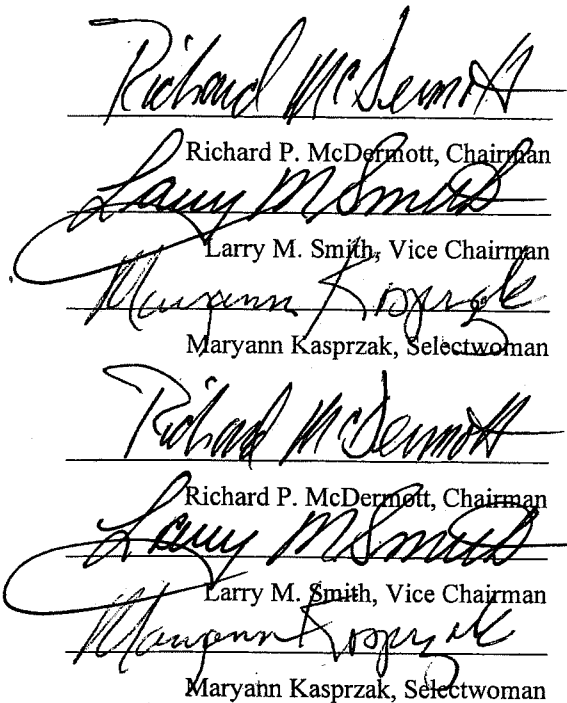 Richard McDermott
Richard P. McDermott, Chairman
Larry M Smith
Larry M. Smith, Vice Chairman
Maryann Kasprzak
Maryann Kasprzak, Selectwoman
Richard McDermott
Richard P. McDermott, Chairman
Larry M Smith
Larry M. Smith, Vice Chairman
Maryann Kasprzak
Maryann Kasprzak, Selectwoman